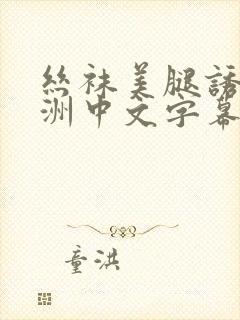 絲袜美腿誘
洲中文字幕
童洪